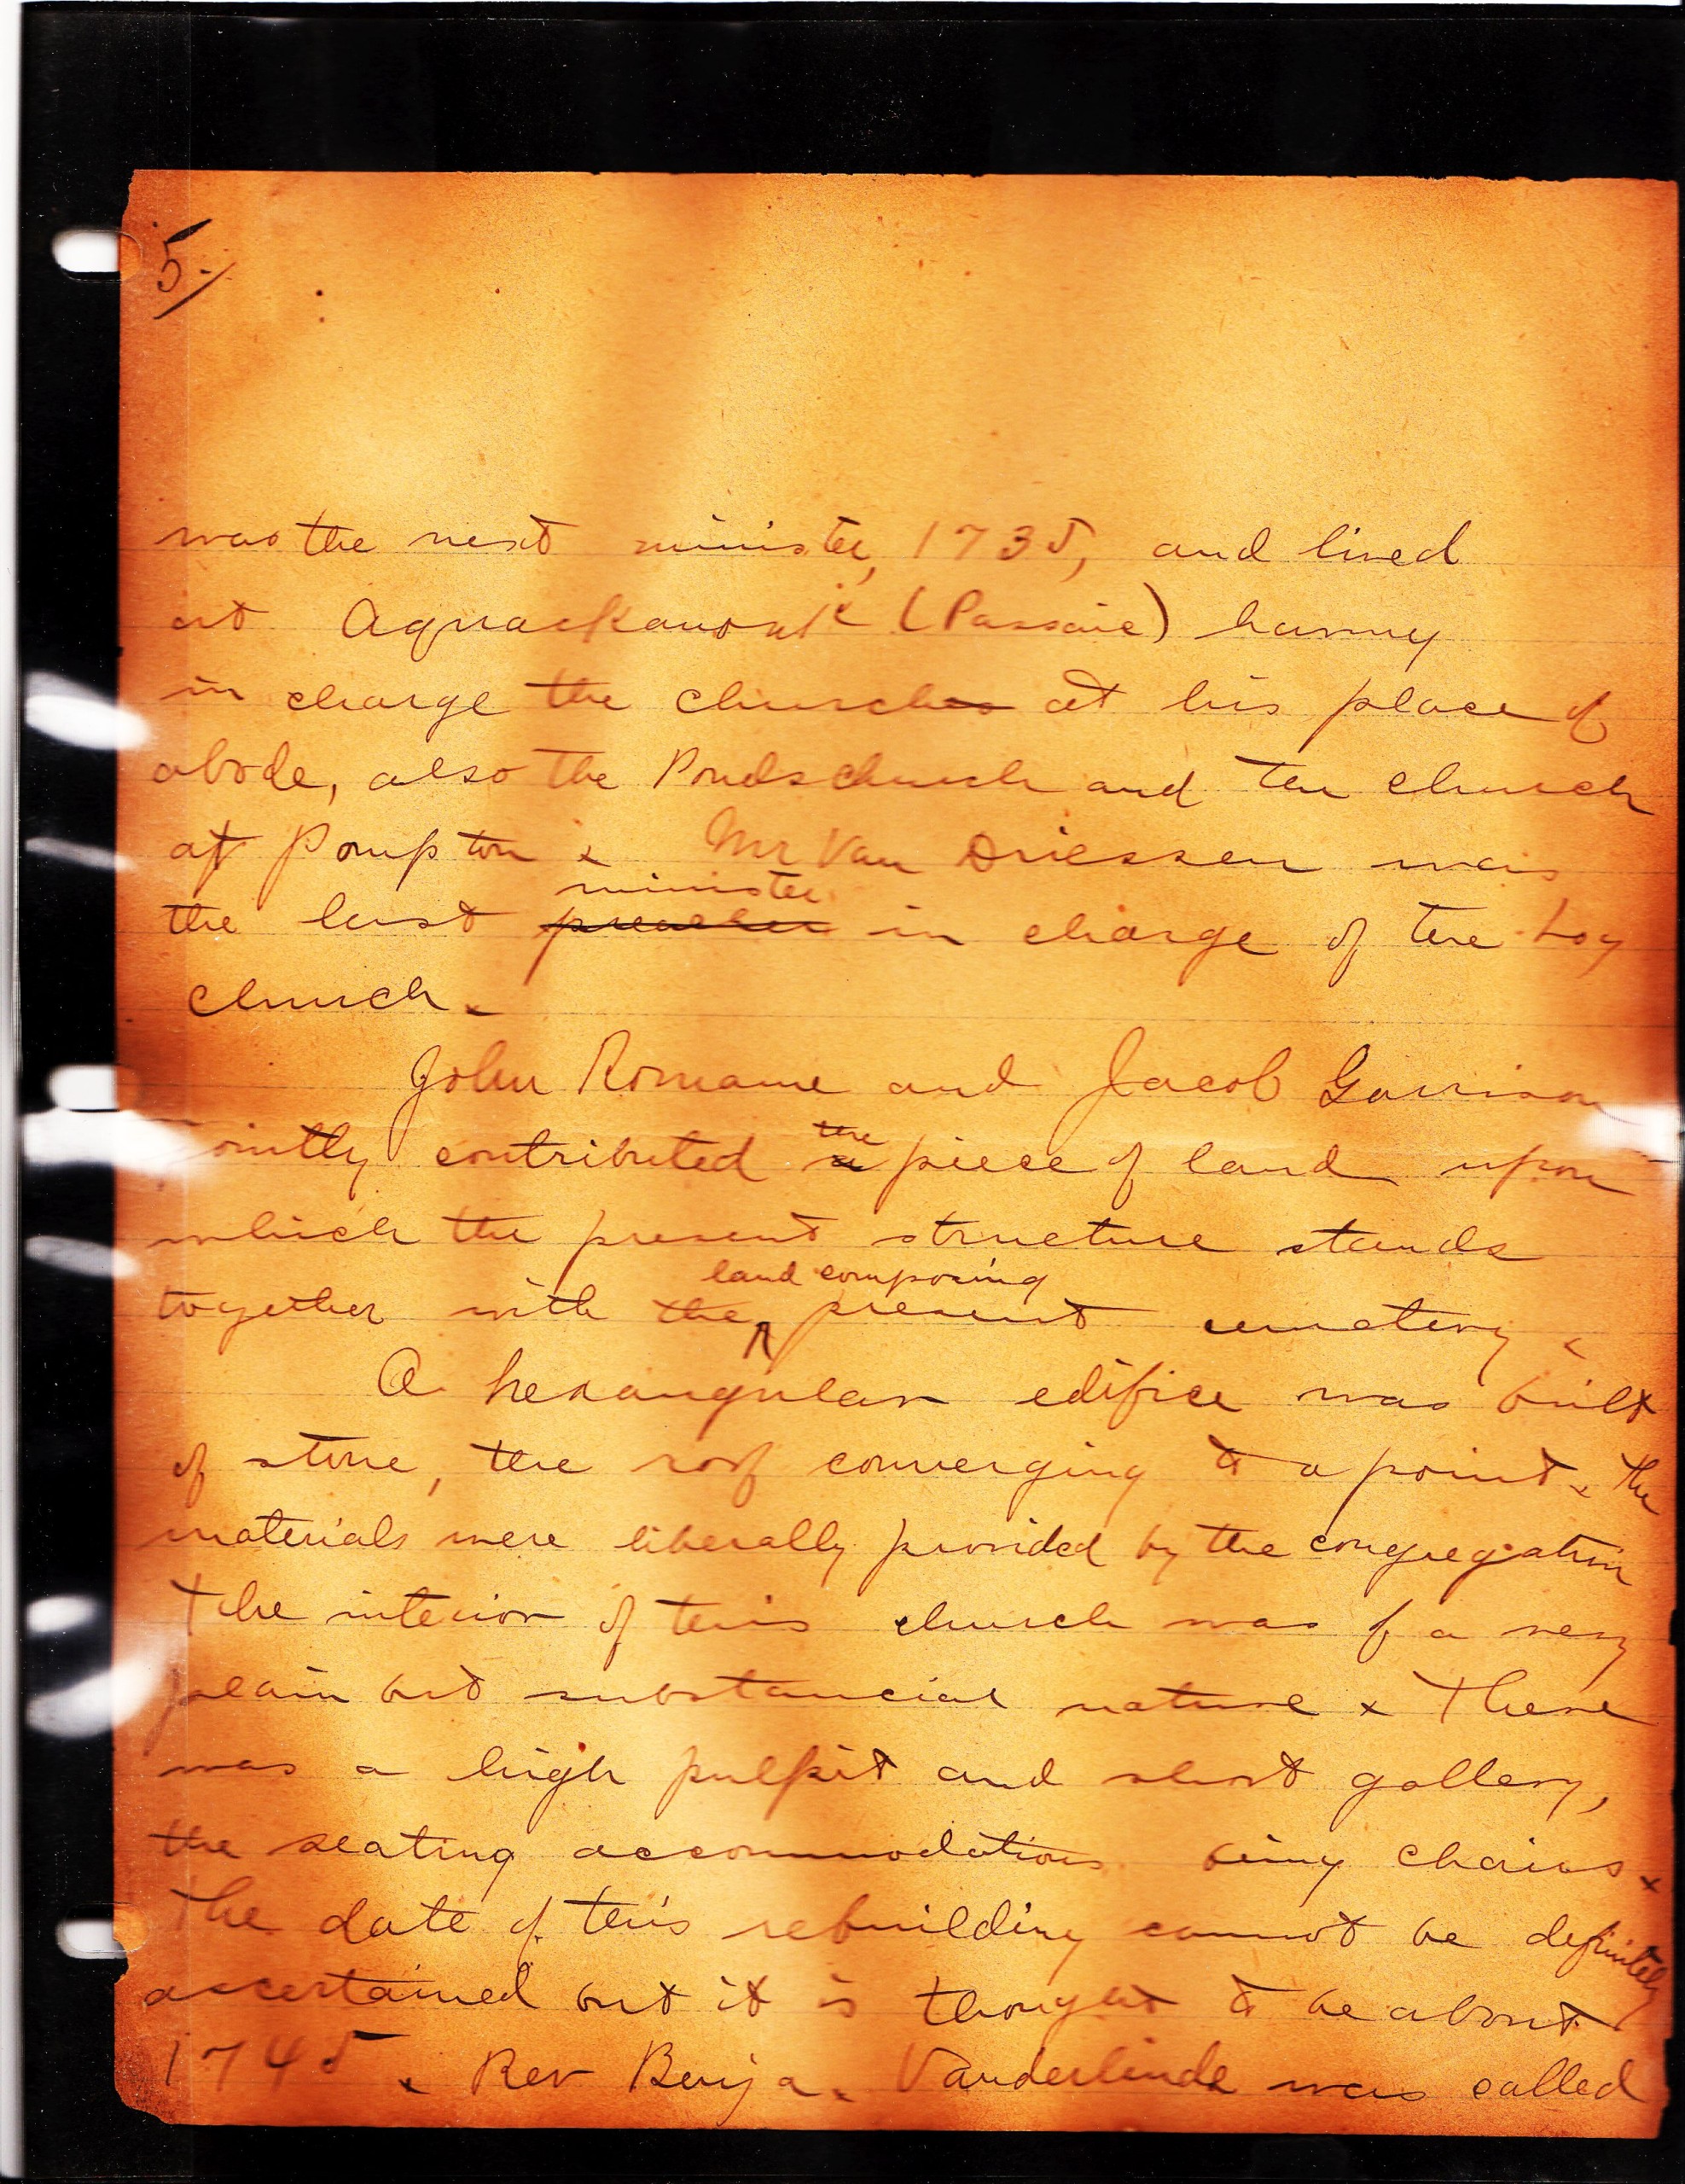 5.
was the next minister, 1735, and lived
at Aquackanonk (Passaic) having
in charge the churches at his place of
abode, also the Ponds church and the church
at Pompton. Mr Van Driessen was
minister
the last preacher in charge of the Log
church.
John Romaine and Jacob Garrison
the
jointly contributed a piece of land upon
which the present structure stands
land composing
together with the present cemetery.
A hexangular edifice was built
of stone, the roof converging to a point. The
materials were liberally provided by the congregation
The interior of this church was of a very
plain but substancial nature. There
was a high pulpit and short gallery,
the seating accommodations being chairs.
The date of this rebuilding cannot be definitely
ascertained but it is thought to be about
1745. Rev Benja. Vanderlinde was called